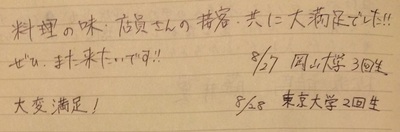 料理の味・店員さんの接客・共に大満足でした!!
ぜひ、また来たいです!! 8/27 岡山大学 3回生
大変満足! 8/28 東京大学 2回生